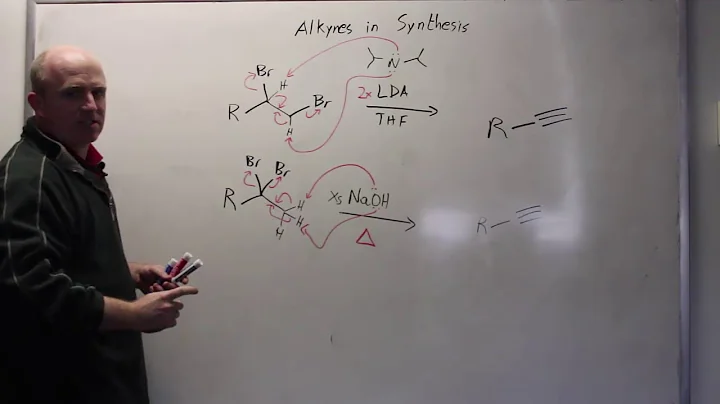 Alkynes in Synthesis
Br
H
R
Br
H
N
2x LDA
THF
R
Br
Br
R
H
H
H
xs NaOH
Δ
R